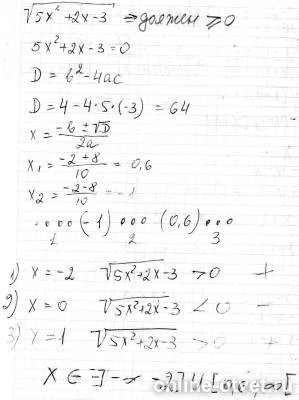 √5x²+2x-3 ⇒ должен ≥ 0
5x²+2x-3=0
D = b²-4ac
D = 4-4·5·(-3) = 64
x = -b ± √D / 2a
x₁ = -2+8 / 10 = 0,6
x₂ = -2-8 / 10 = -1
....(-1) ... (0,6) ...
1 2 3
1) x = -2 √5x²+2x-3 > 0 +
2) x = 0 √5x²+2x-3 < 0 -
3) x = 1 √5x²+2x-3 > 0 +